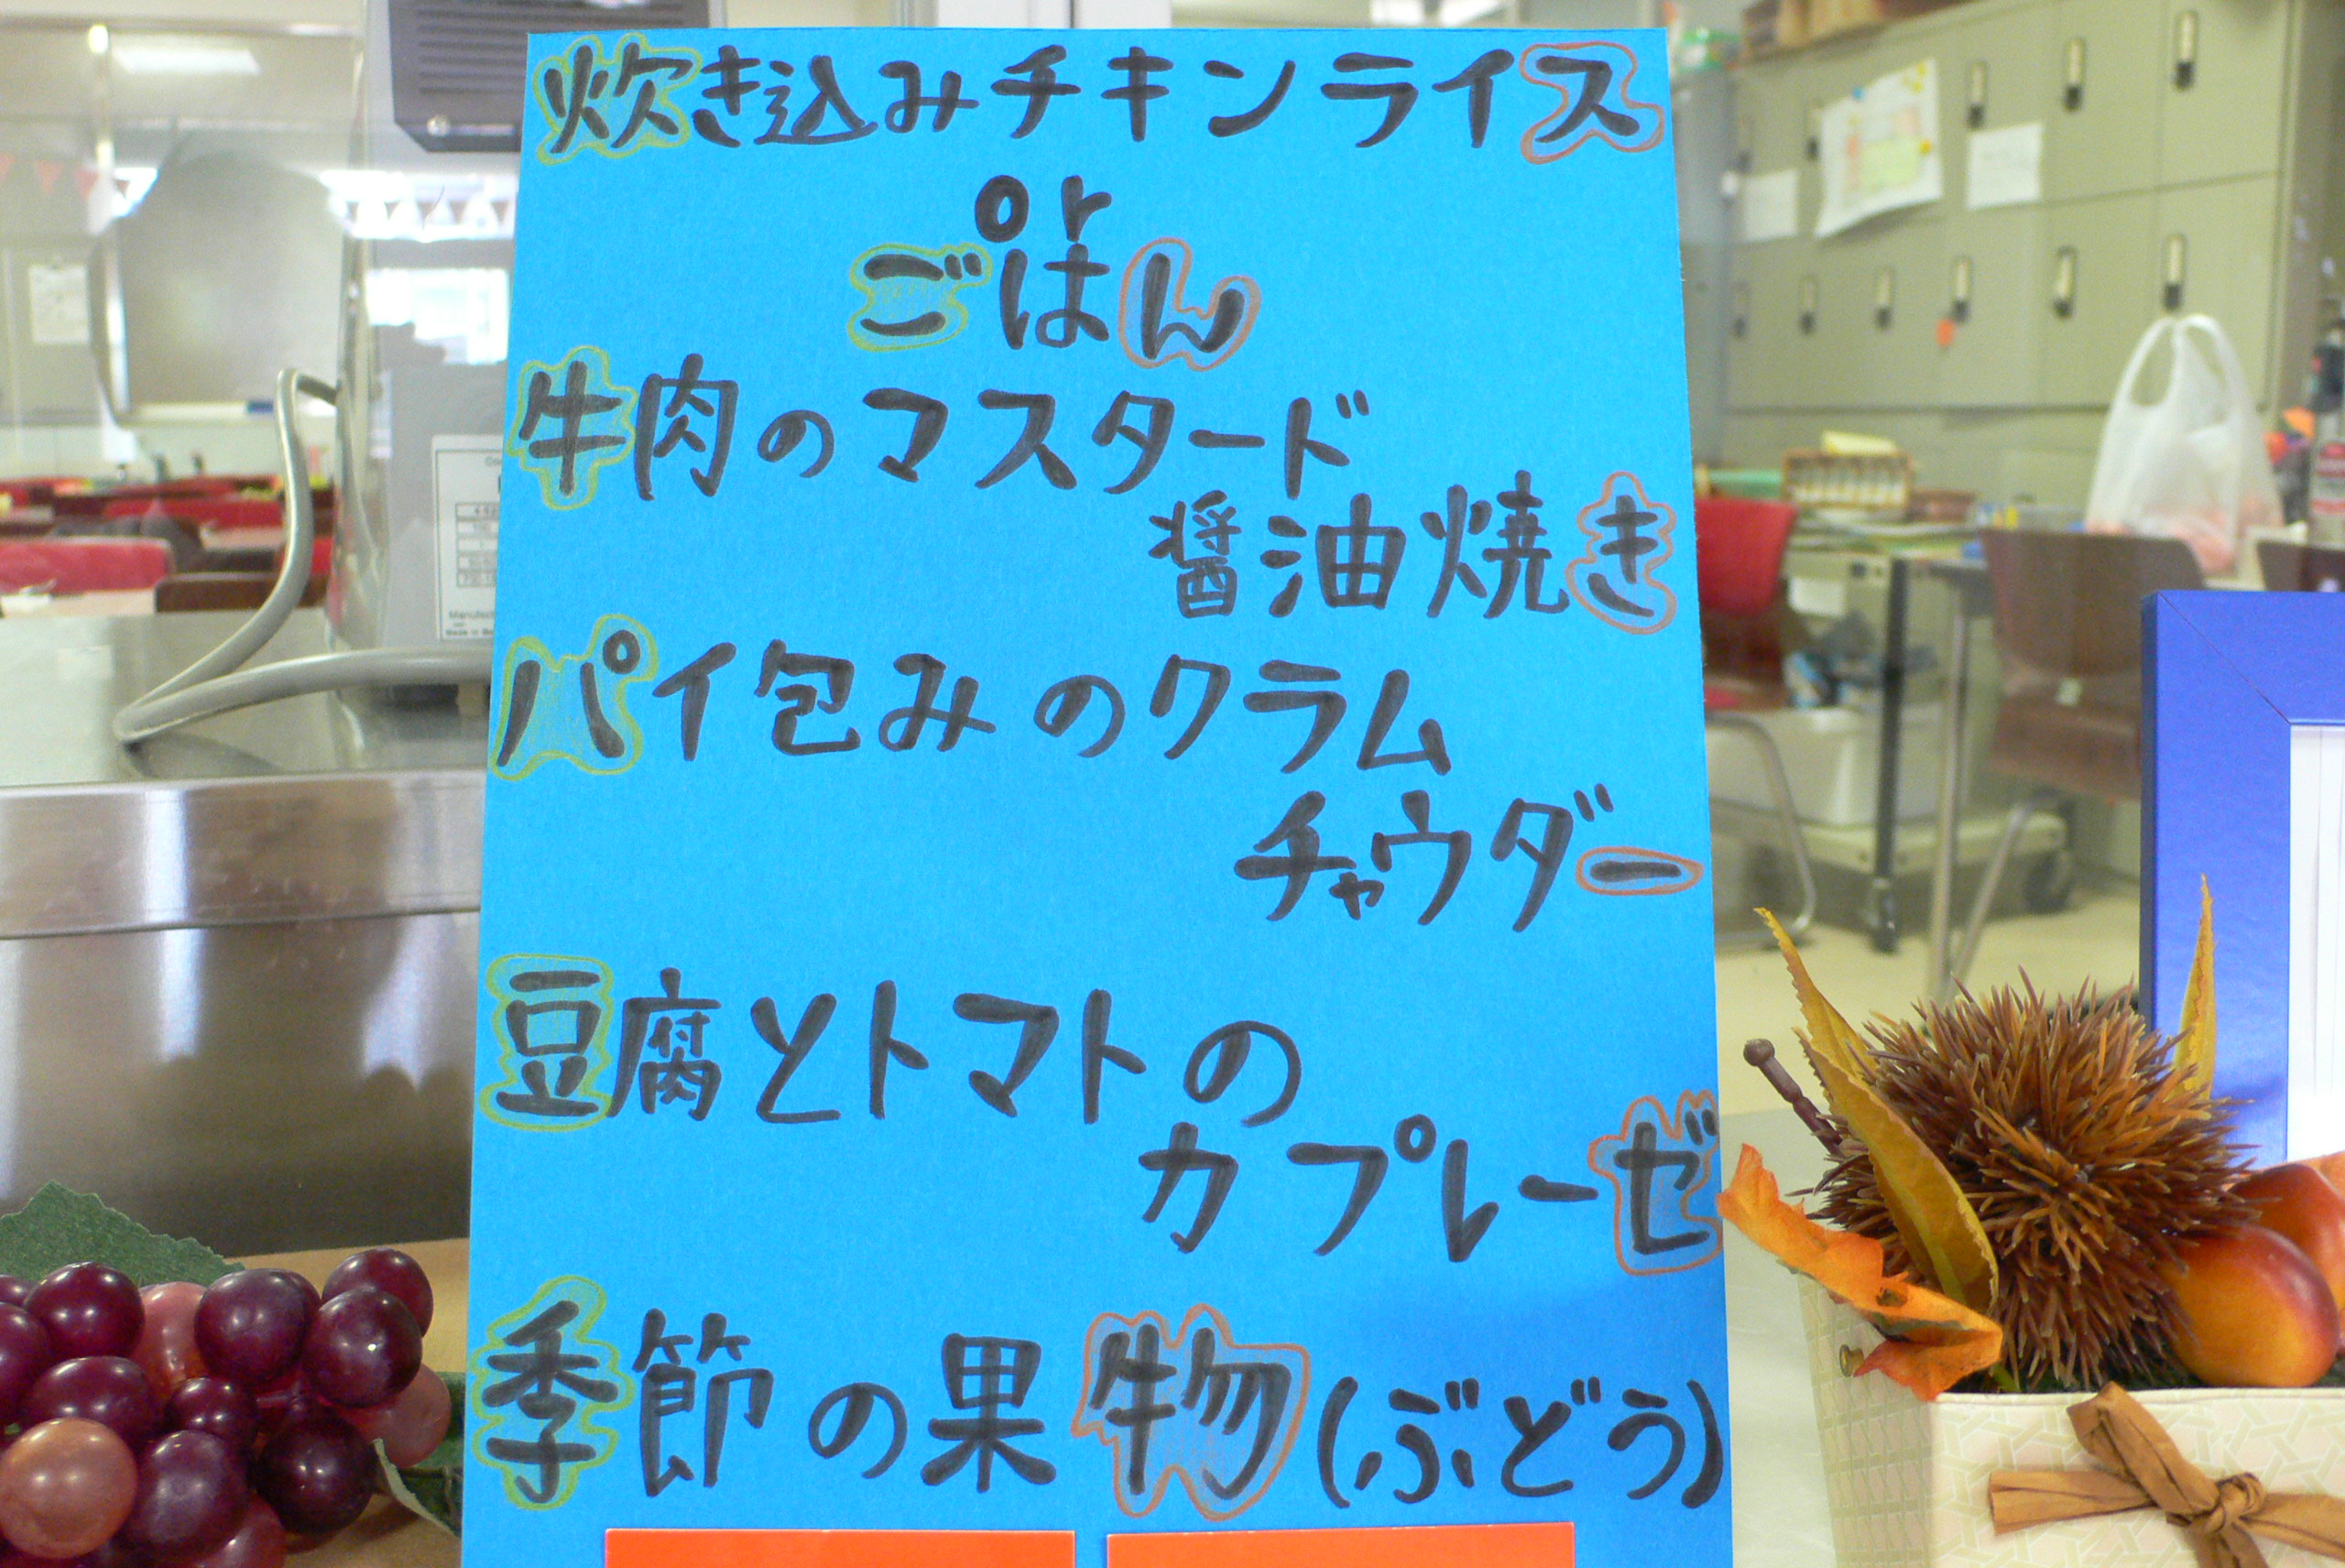 炊き込みチキンライス
or
ごはん
牛肉のマスタード
醤油焼き
パイ包みのクラム
チャウダー
豆腐とトマトの
カプレーゼ
季節の果物(ぶどう)